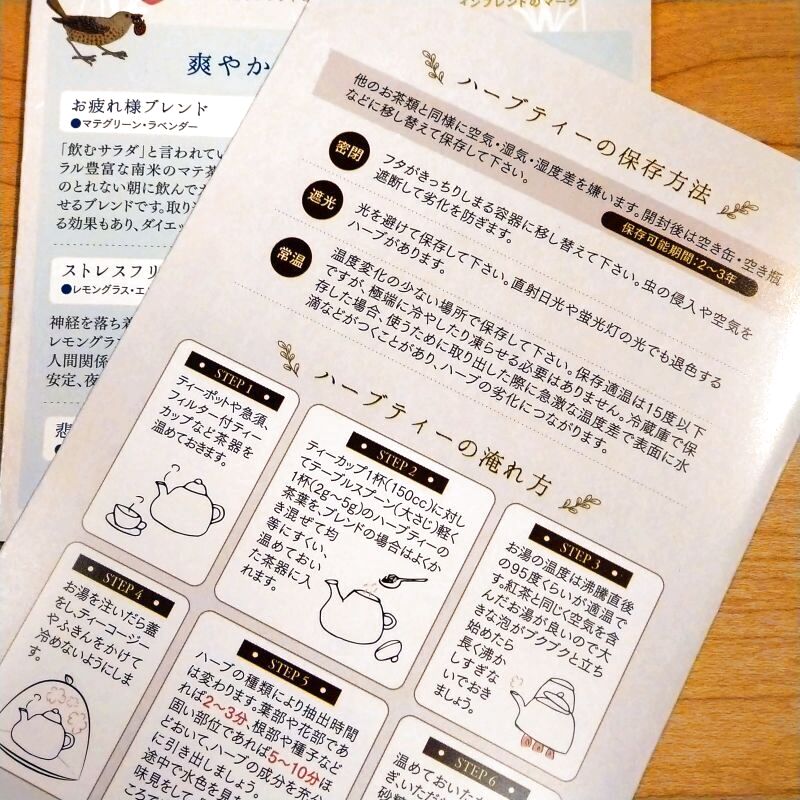 インブレンドのマーク
爽やか
お疲れ様ブレンド
●マテグリーン・ラベンダー
「飲むサラダ」と言われてい
ラル豊富な南米のマテ茶
のとれない朝に飲んで
せるブレンドです。取り
る効果もあり、ダイエッ
ストレスフリ
●レモングラス・エ
神経を落ち着
レモングラ
人間関係
安定、夜
悲
ハーブティーの保存方法
他のお茶類と同様に空気・湿気・湿度差を嫌います。開封後は空き缶・空き瓶
などに移し替えて保存して下さい。
保存可能期間:2〜3年
密閉
フタがきっちりしまる容器に移し替えて下さい。虫の侵入や空気を
遮断して劣化を防ぎます。
遮光
光を避けて保存して下さい。直射日光や蛍光灯の光でも退色する
ハーブがあります。
常温
温度変化の少ない場所で保存して下さい。保存適温は15度以下
ですが、極端に冷やしたり凍らせる必要はありません。冷蔵庫で保
存した場合、使うために取り出した際に急激な温度差で表面に水
滴などがつくことがあり、ハーブの劣化につながります。
ハーブティーの淹れ方
STEP 1
ティーポットや急須、
フィルター付ティー
カップなど茶器を
温めておきます。
STEP 2
ティーカップ1杯(150cc)に対し
てテーブルスプーン(大さじ)軽く
1杯(2g〜5g)のハーブティーの
茶葉を、ブレンドの場合はよくか
き混ぜて均
等にすくい、
温めておい
た茶器に入
れます。
STEP 3
お湯の温度は沸騰直後
の95度くらいが適温で
す。紅茶と同じく空気を含
んだお湯が良いので大
きな泡がブクブクと立ち
始めたら
長く沸か
しすぎな
いでおき
ましょう。
STEP 4
お湯を注いだら蓋
をし、ティーコージー
やふきんをかけて
冷めないようにしま
す。
STEP 5
ハーブの種類により抽出時間
は変わります。葉部や花部であ
れば2〜3分、根部や種子など
固い部位であれば5〜10分ほ
どおいて、ハーブの成分を充分
に引き出しましょう。
途中で水色を見た
味見をして、
ころで
STEP 6
温めておいた
ぎ、いただ
砂糖